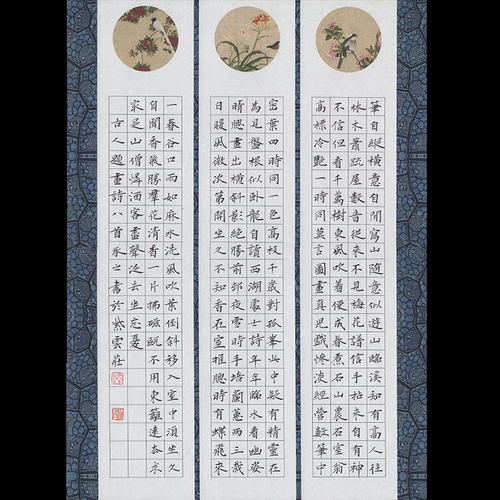 筆自縱橫意自閒寫山隨意似遊山臨溪知有高人往
林木蕭疏屋數間從來不見梅花譜信手拈來自有神
不信但看千萬樹東風吹着便成春煮石山農石室翁
高標冷艷一時同莫言圖畫真兒戲慘淡經營彀率中
密葉四時同一色高枝千歲對孤峯此中疑有精靈在
為見盤根似臥龍自讀西湖處士詩年年臨水看幽姿
晴牕畫出橫斜影絕勝前邨夜雪時手培蘭蕙兩三栽
日暖風微次第開坐久不知香在室推牕時有蝶飛來
一春谷口雨如麻水洗風吹葉倒斜移入室中須坐久
自聞香氣勝羣花清香一片拂不用東籬遠去求
家是山僧憐酒客盡泛去坐忘憂
古人題畫詩八首承之書於紫雲莊